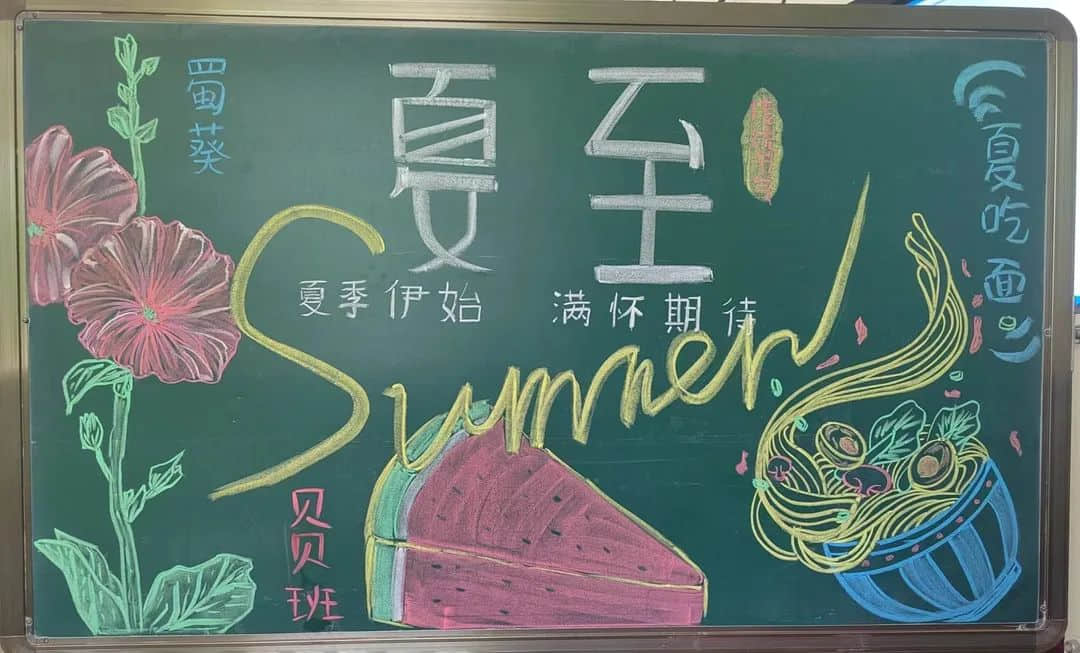 夏至
夏季伊始 满怀期待
Summer
蜀葵
夏吃面
贝贝班